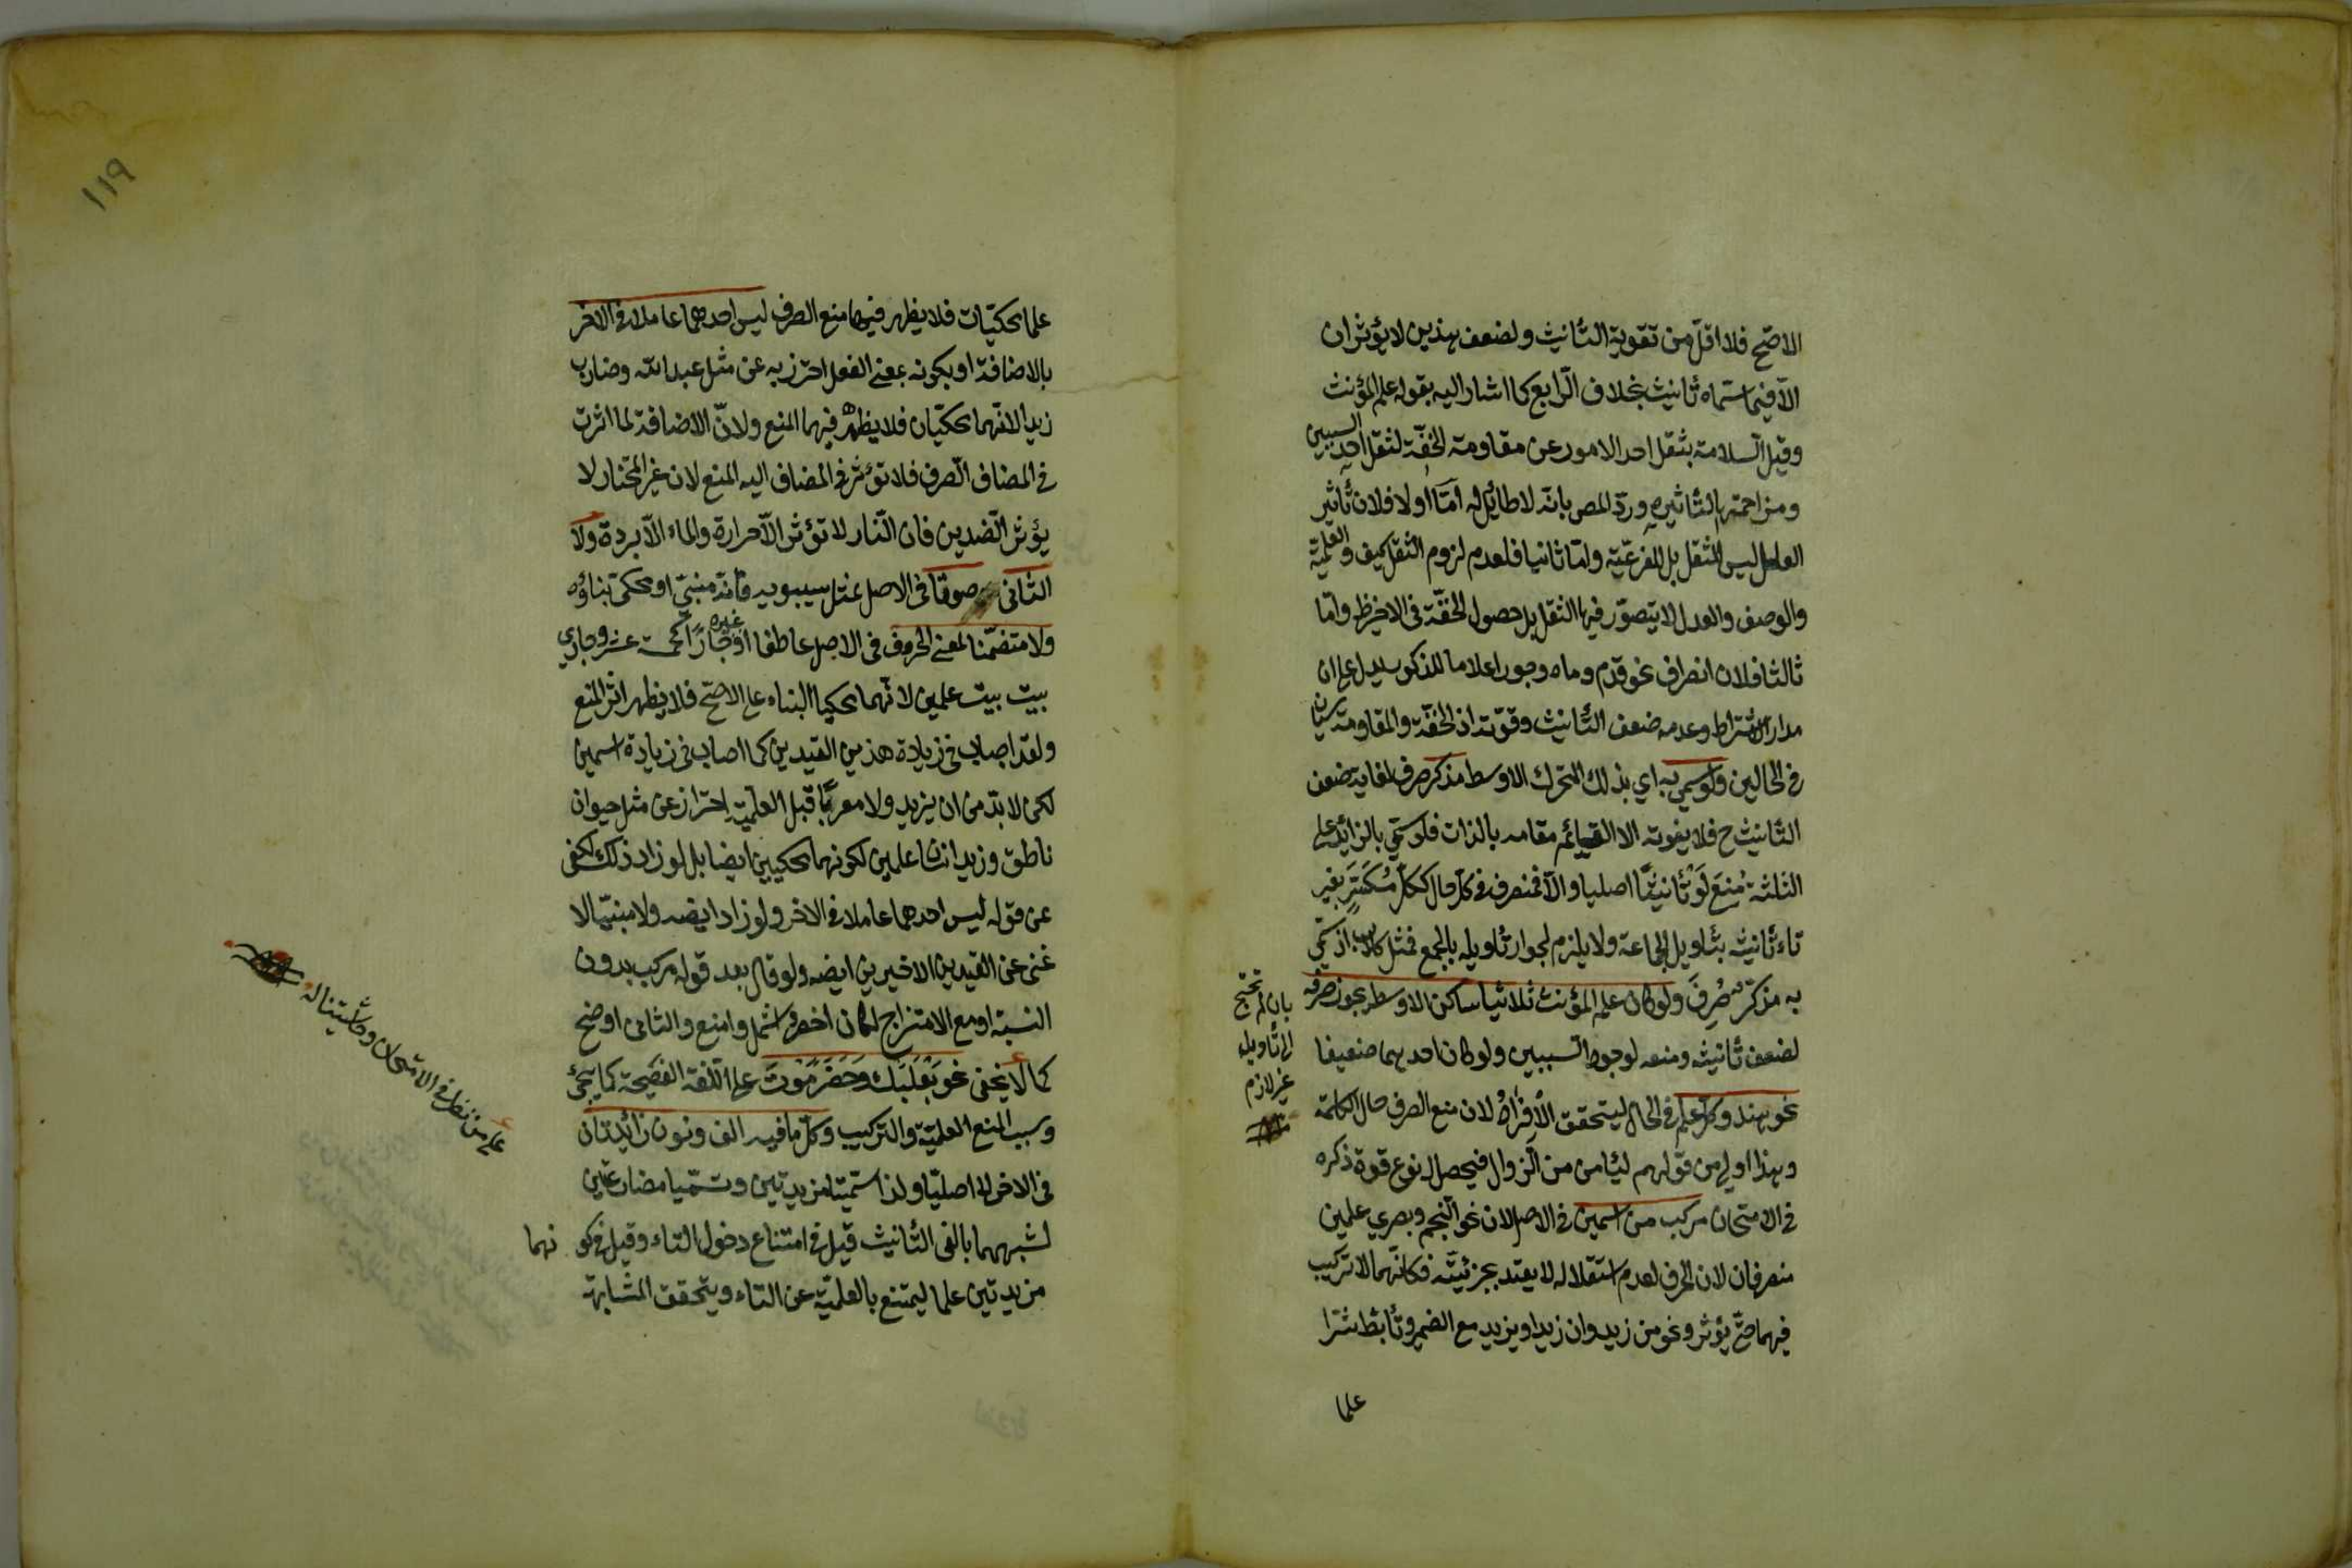 الاصح فلا اقل من تقوية التأنيث ولضعف هذين لا يؤثران
الا فيما سماه تأنيث بخلاف الرابع كما اشار اليه بقوله علم المؤنث
وقيل السلامة بثقل احد الامور عن مقاومة الخفة لثقل احد السببين
ومزاحمتها لتأثيره وردّ المص بانه لا طائل له امّا اولا فلان تأثير
العلل ليس للثقل بل للفرعيّة وامّا ثانيا فلعدم لزوم الثقل كيف والعلمية
والوصف والعدل لا يتصوّر فيها الثقل بل حصول الخفّة في الاخير ظ وامّا
ثالثا فلان انصراف نحو قدم وماه وجور اعلاما للمذكور يدل على ان
مدار الاشتراط وعدمه ضعف التأنيث وقوّته اذ الخفّة والمقاومة سيان
في الحالين ولو سمي به اي بذلك المتحرك الاوسط مذكر صرف لغاية ضعف
التأنيث ح فلا يفوته الا القيائم مقامه بالذات فلو سمّي بالزائد على
الثلثة مُنِعَ لَوْ تأنيثًا اصليا والّا فمنصرف في كلّ حال ككلّ مُكَسَّرٍ بغير
تاء تأنيث بتأويل الجماعة ولا يلزم لجواز تأويله بالجمع فمثل كلاب اذ سمّي
به مذكّر صُرِفَ ولو كان علم المؤنث ثلاثيا ساكن الاوسط يجوز صرفه
لضعف تأنيثه ومنعه لوجود السببين ولو كان احدهما ضعيفا
نحو هند وكل علم في الحال ليتحقق الأفراد لان منع الصرف حال الكلمة
وهذا اولى من قولهم ليأمن من الزوال فيحصل له نوع قوة ذكره
في الامتحان مركب من اسمين في الاصل لان نحو النجم وبصري علمين
منصرفان لان الحرف لعدم استقلاله لا يعتد بجزئيته فكأنّهما لا تركيب
فيهما حتّى يؤثر ونحو من زيد وان زيدا ويزيد مع الضمير وتأبّط شرّا
علما
بان لم تحتج
الى تأويل
غير لازم
١١٩
علما محكيّات فلا يظهر فيها منع الصرف ليس احدهما عاملا في الاخر
بالاضافة او بكونه بمعنى الفعل احترز به عن مثل عبد الله وضارب
زيدا لانّهما محكيّان فلا يظهر فيهما المنع ولانّ الاضافة لما اثرت
في المضاف الصّرف فلا تؤثر في المضاف اليه المنع لان غير المختار لا
يؤثر الضدين فان النّار لا تؤثر الّا حرارة والماء الّا بردة ولا
الثاني صوتا في الاصل مثل سيبويه فانه مبنيّ او محكى بناؤه
ولا متضمّنا لمعنى الحروف في الاصل عاطفا او غيره جارّا كخمسة عشر وجاري
بيت بيت علمين لانّهما محكيا البناء على الاصحّ فلا يظهر اثر المنع
ولقد اصاب في زيادة هذين القيدين كما اصاب في زيادة اسمين
لكن لا بدّ من ان يزيد ولا معربًا قبل العلميّة احتراز عن مثل حيوان
ناطق وزيد انسان علمين لكونهما محكيين ايضا بل لو زاد ذلك لكفى
عن قوله ليس احدهما عاملا في الاخر ولو زاد ايضه ولا مبنيّا لا
غنى عن القيدين الاخيرين ايضه ولو قال بعد قوله مركب بدون
النسبة او مع الامتزاج لكان اخصر واشمل وامنع والثاني اوضح
كما لا يخفى نحو بَعْلَبَكَ وحَضَرَمَوْتَ على اللغة الفصيحة كما يجئ
وسبب المنع العلميّة والتركيب وكلّ ما فيه الف ونون زائدتان
في الاخر لا اصليّا ولذا سمّيتا مزيدتين وتسمّيا مضارعتين
لشبههما بالفي التأنيث قيل في امتناع دخول التاء وقيل في كو نهما
مزيدتين علما ليمتنع بالعلميّة عن التاء ويتحقق المشابهة
علم من نظر في الامتحان وحاشيتنا له